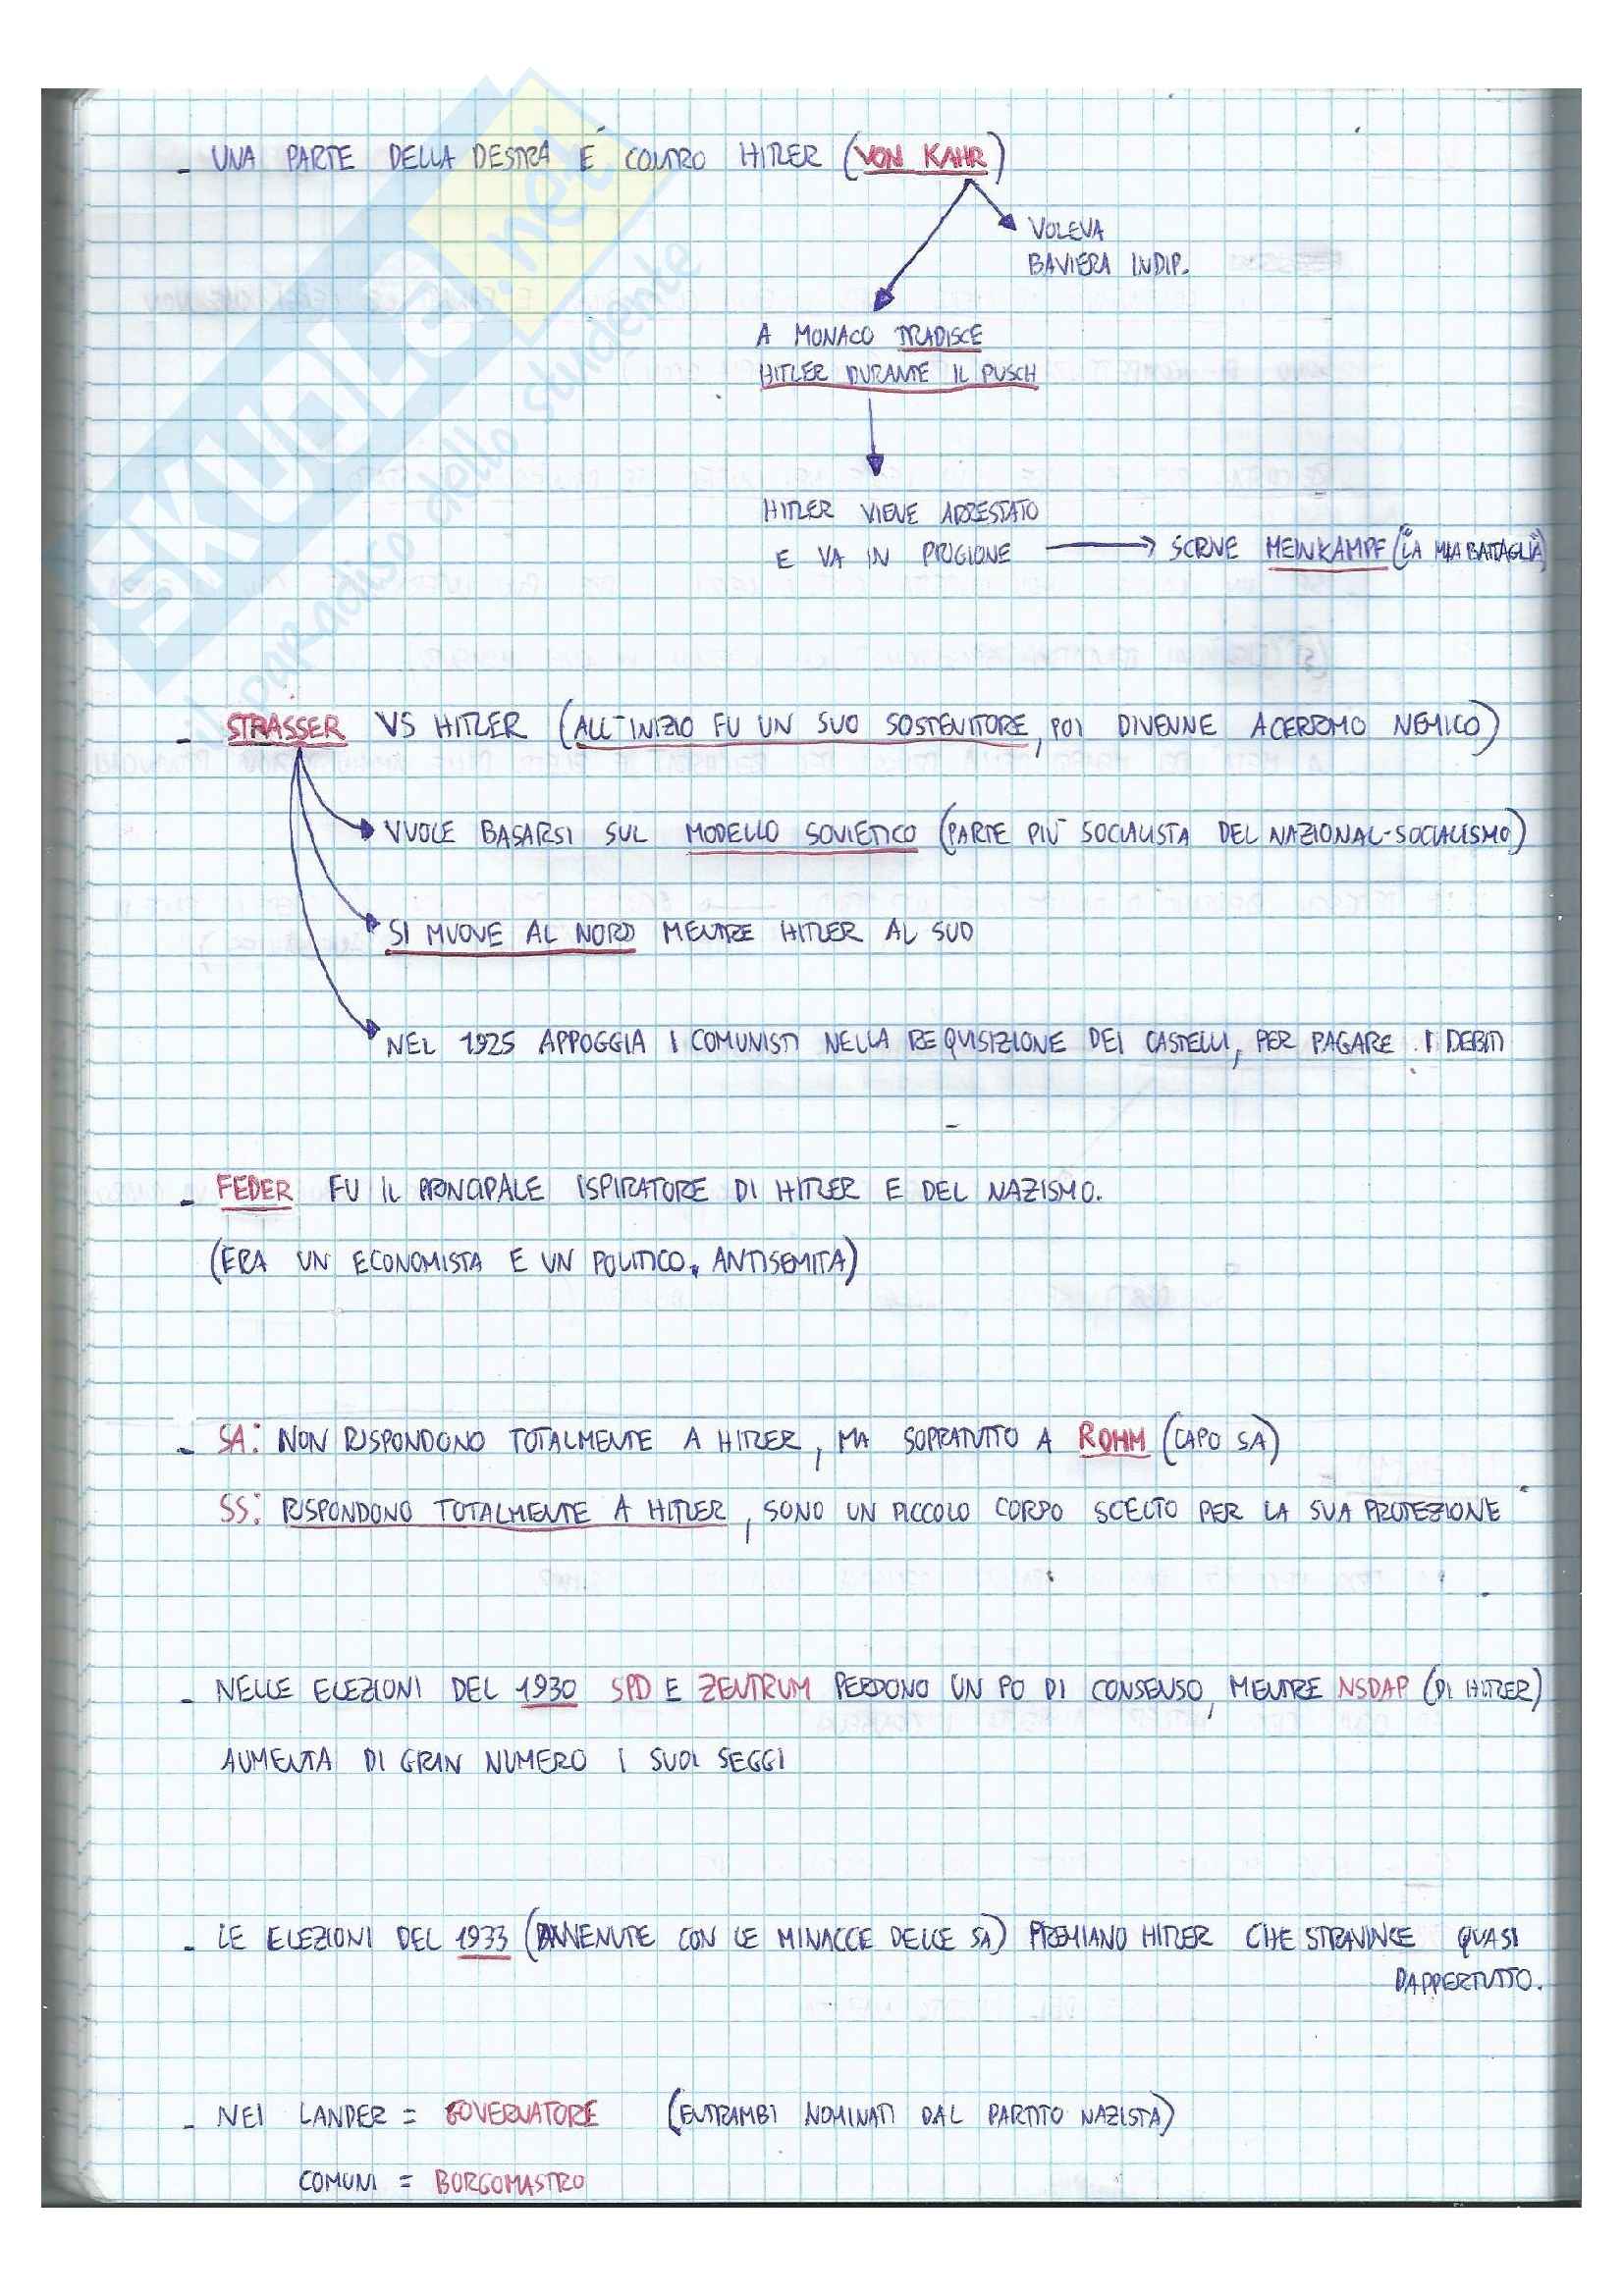 SKUOLA.net
il paradiso dello studente
- UNA PARTE DELLA DESTRA È CONTRO HITLER (VON KAHR)
VOLEVA
BAVIERA INDIP.
A MONACO TRADISCE
HITLER DURANTE IL PUSCH
HITLER VIENE ARRESTATO
E VA IN PRIGIONE → SCRIVE MEINKAMPF ("LA MIA BATTAGLIA")
- STRASSER VS HITLER (ALL'INIZIO FU UN SUO SOSTENITORE, POI DIVENNE ACERRIMO NEMICO)
VUOLE BASARSI SUL MODELLO SOVIETICO (PARTE PIÙ SOCIALISTA DEL NAZIONAL-SOCIALISMO)
SI MUOVE AL NORD MENTRE HITLER AL SUD
NEL 1925 APPOGGIA I COMUNISTI NELLA REQUISIZIONE DEI CASTELLI, PER PAGARE I DEBITI
- FEDER FU IL PRINCIPALE ISPIRATORE DI HITLER E DEL NAZISMO.
(ERA UN ECONOMISTA E UN POLITICO, ANTISEMITA)
- SA: NON RISPONDONO TOTALMENTE A HITLER, MA SOPRATUTTO A ROHM (CAPO SA)
SS: RISPONDONO TOTALMENTE A HITLER, SONO UN PICCOLO CORPO SCELTO PER LA SUA PROTEZIONE
- NELLE ELEZIONI DEL 1930 SPD E ZENTRUM PERDONO UN PO DI CONSENSO, MENTRE NSDAP (DI HITLER)
AUMENTA DI GRAN NUMERO I SUOI SEGGI
- LE ELEZIONI DEL 1933 (AVVENUTE CON LE MINACCE DELLE SA) PREMIANO HITLER CHE STRAVINCE QUASI
DAPPERTUTTO.
- NEI LANDER = GOVERNATORE (ENTRAMBI NOMINATI DAL PARTITO NAZISTA)
COMUNI = BORGOMASTRO